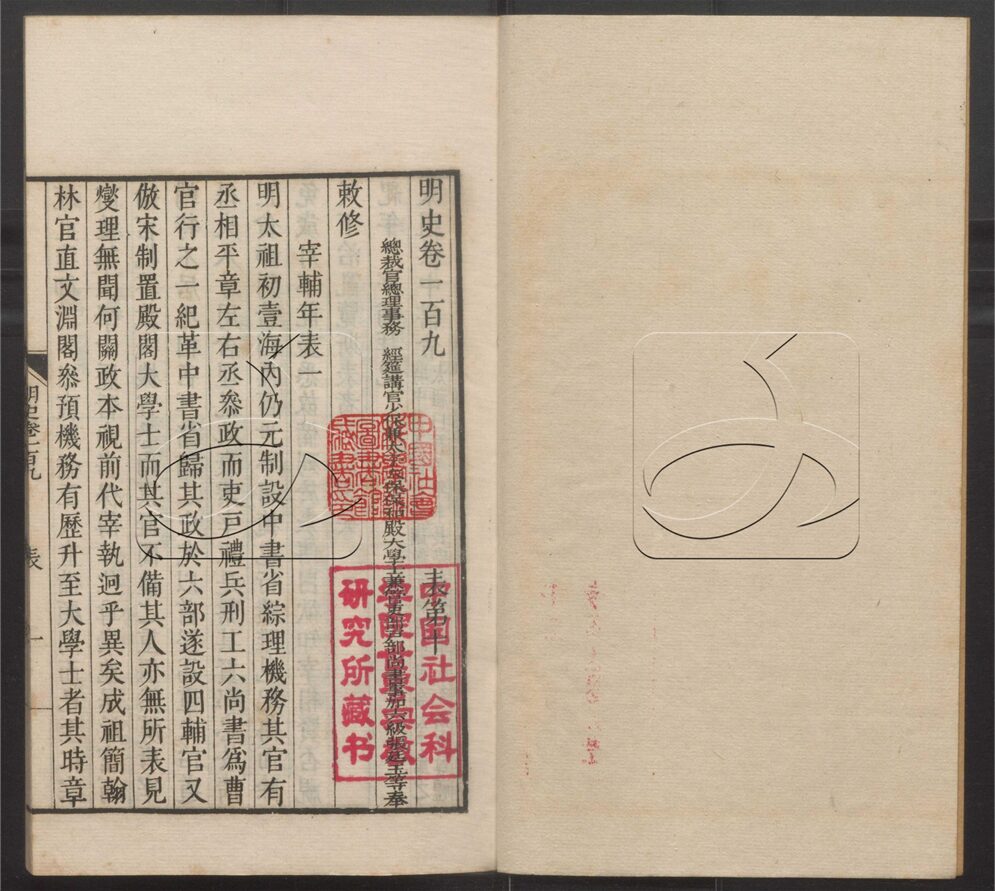 明史卷一百九 表第十
總裁官總理事務 經筵講官少保兼太子太保保和殿大學士兼管吏部戶部尚書事加六級張廷玉等奉
敕修
宰輔年表一
明太祖初壹海內仍元制設中書省綜理機務其官有
丞相平章左右丞叅政而吏戶禮兵刑工六尚書爲曹
官行之一紀革中書省歸其政於六部遂設四輔官又
倣宋制置殿閣大學士而其官不備其人亦無所表見
燮理無聞何關政本視前代宰執迥乎異矣成祖簡翰
林官直文淵閣叅預機務有歷升至大學士者其時章
明史卷一百九 表 一
中國社會
圖書館
藏書印
中国社会科
研究所藏书